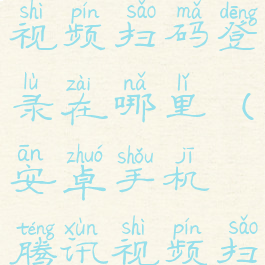 shì pín sǎo mǎ dēng
视频扫码登
lù zài nǎ lǐ
录在哪里（
ān zhuó shǒu jī
安卓手机
téng xùn shì pín sǎo
腾讯视频扫